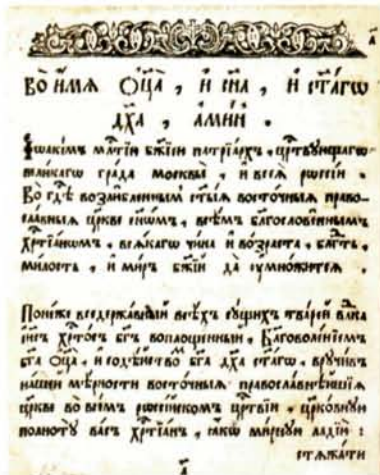 а҃
Во и́мѧ Ѻц҃а̀ , и҆ сн҃а , и҆ ст҃агѡ
дх҃а , а҆ми́н .
І҆ѡаки́мъ мл҃тїю бж҃їею патрїа́рхъ , црⷭ҇твꙋющагѡ
вели́кагѡ гра́да москвы̀ , и҆ всеѧ̀ рѡссі́и .
Во гдⷭ҇ѣ возлю́бленнымъ ст҃ы́ѧ восто́чныѧ право-
сла́вныѧ цр҃кве сн҃ѡ́мъ , всѣ̑мъ блгⷭ҇ослове́ннымъ
хрⷭ҇тїа́нѡмъ , всѧ́кагѡ чи́на и҆ во́зраста , блгⷣть ,
ми́лость , и҆ ми́ръ бж҃їй да ᲂу҆мно́житсѧ .
Поне́же вседержа́вный всѣ́хъ сꙋ́щихъ тва́рей влⷣка
і҆и҃съ хрⷭ҇то́съ бг҃ъ воплоще́нный , Бл҃говоле́нїемъ
бг҃а Ѻц҃а̀ , и҆ содѣ́йство бг҃а дх҃а ст҃а́гѡ , врꙋчи́въ
на́шей мѣ́рности восто́чныѧ правосла́внѣйшїѧ
цр҃кве во все́мъ рѡссі́йскомъ црⷭ҇твїи , цр҃ко́внꙋю
полнотꙋ̀ ва́съ хрⷭ҇тїа́нъ , ꙗ҆́кѡ мирскꙋ́ю ладїю̀ :
стѧжа́ти